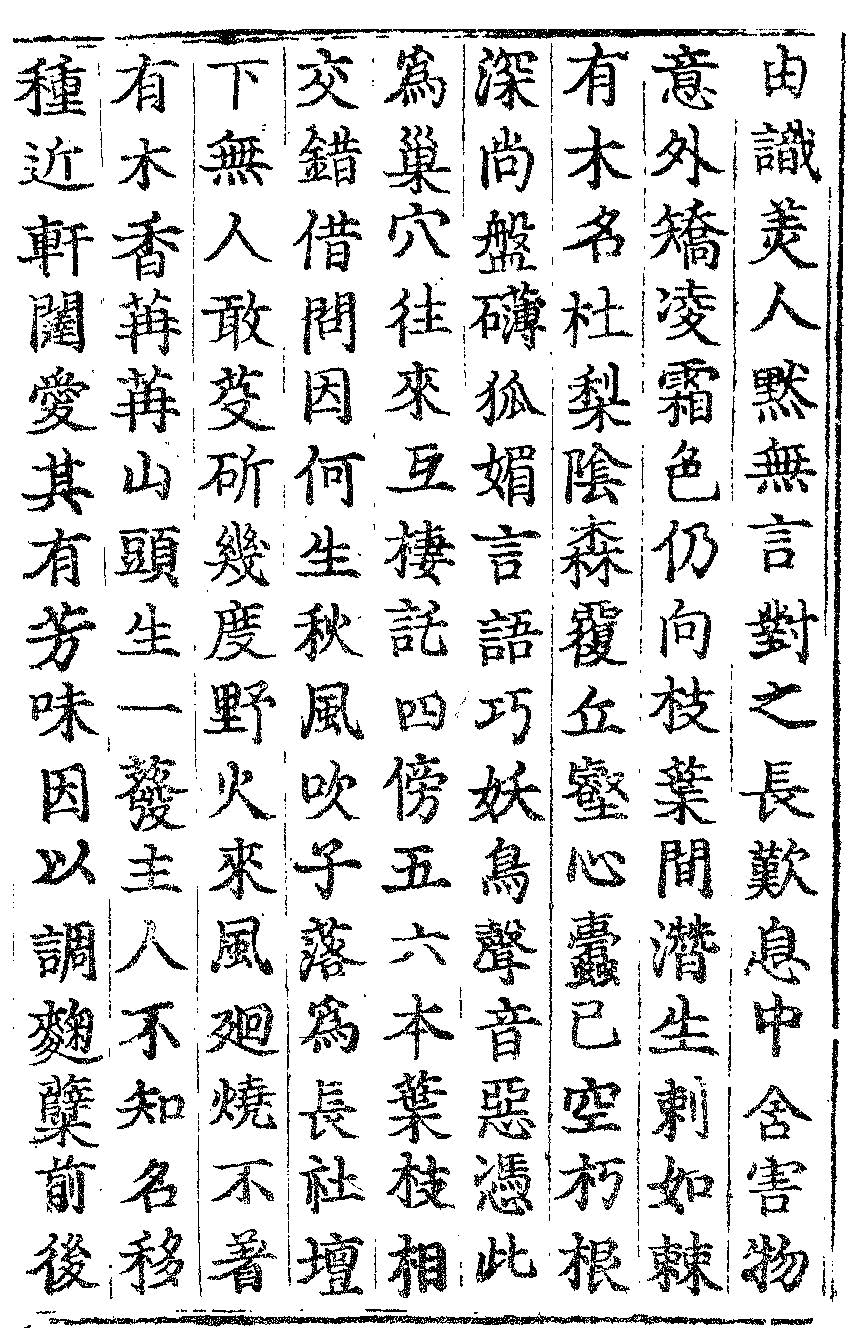 由識羙人黙無言對之長歎息中含害物
意外矯凌霜色仍向枝葉間潛生刺如棘
有木名杜梨陰森覆丘壑心蠹已空朽根
深尚盤礴狐媚言語巧妖鳥聲音惡憑此
爲巢穴往來互棲託四傍五六本葉枝相
交錯借問因何生秋風吹子落爲長社壇
下無人敢芟斫幾度野火來風廻燒不著
有木香苒苒山頭生一蕟主人不知名移
種近軒闥愛其有芳味因以調麴糵前後